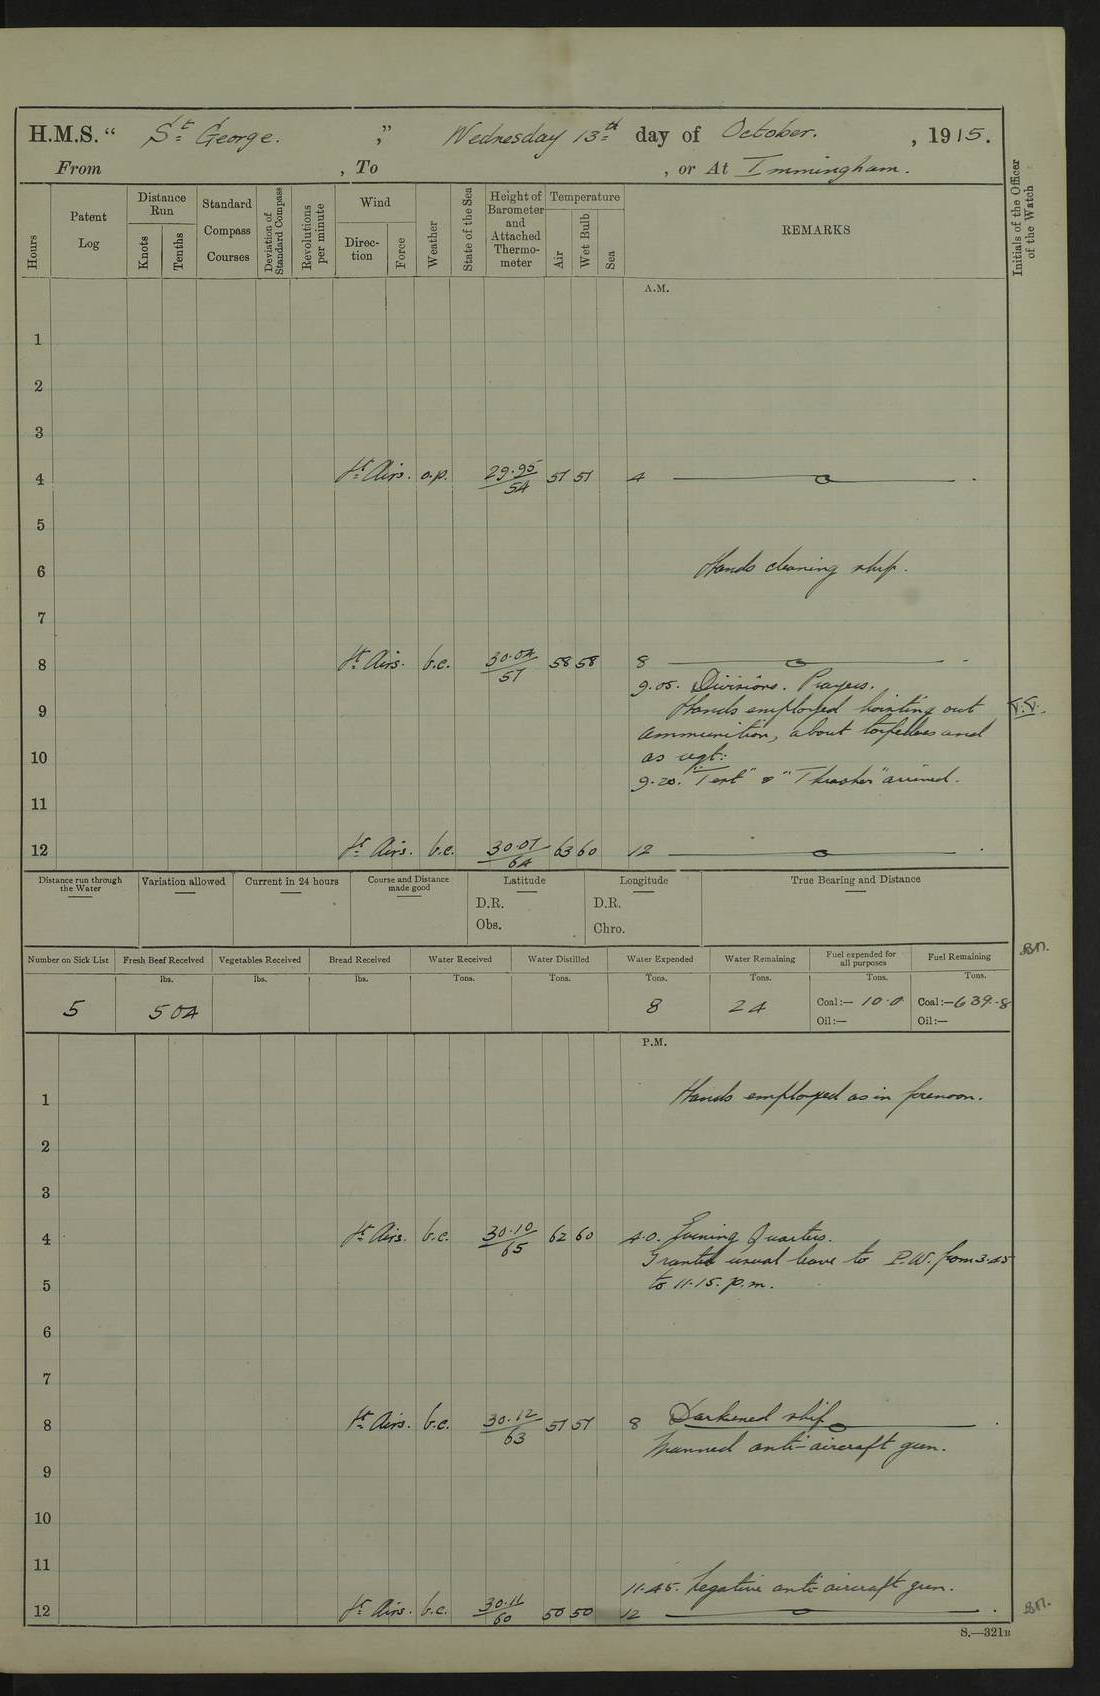 H.M.S. " St George. ," Wednesday 13th day of October. , 1915.
From , To , or At Immingham.
Hours
Patent Log
Distance Run
Knots
Tenths
Standard Compass Courses
Deviation of Standard Compass
Revolutions per minute
Wind
Direction
Force
Weather
State of the Sea
Height of Barometer and Attached Thermometer
Temperature
Air
Wet Bulb
Sea
REMARKS
Initials of the Officer of the Watch
A.M.
1
2
3
4 Lt Airs. o.p. 29.95/54 51 51 4
5
6 Hands cleaning ship.
7
8 Lt Airs. b.c. 30.04/57 58 58 8
9.05. Divisions. Prayers.
9 Hands employed hoisting out
ammunition, about torpedoes and
10 as reqt:
9.20. "Test" & "Thrasher" arrived.
11
12 Lt Airs. b.c. 30.07/64 63 60 12
Distance run through the Water
Variation allowed
Current in 24 hours
Course and Distance made good
Latitude
D.R.
Obs.
Longitude
D.R.
Chro.
True Bearing and Distance
Number on Sick List
Fresh Beef Received
Vegetables Received
Bread Received
Water Received
Water Distilled
Water Expended
Water Remaining
Fuel expended for all purposes
Fuel Remaining
lbs. lbs. lbs. Tons. Tons. Tons. Tons. Tons. Tons.
5 504 8 24 Coal:— 10.0 Coal:— 639.8
Oil:— Oil:—
P.M.
1 Hands employed as in forenoon.
2
3
4 Lt Airs. b.c. 30.10/65 62 60 4.0. Evening Quarters.
Granted usual leave to P.W. from 3.45
5 to 11.15. p.m.
6
7
8 Lt Airs. b.c. 30.12/63 57 57 8 Darkened ship
Manned anti-aircraft gun.
9
10
11
11.45. Negative anti-aircraft gun.
12 Lt Airs. b.c. 30.11/60 50 50 12
S.—321B